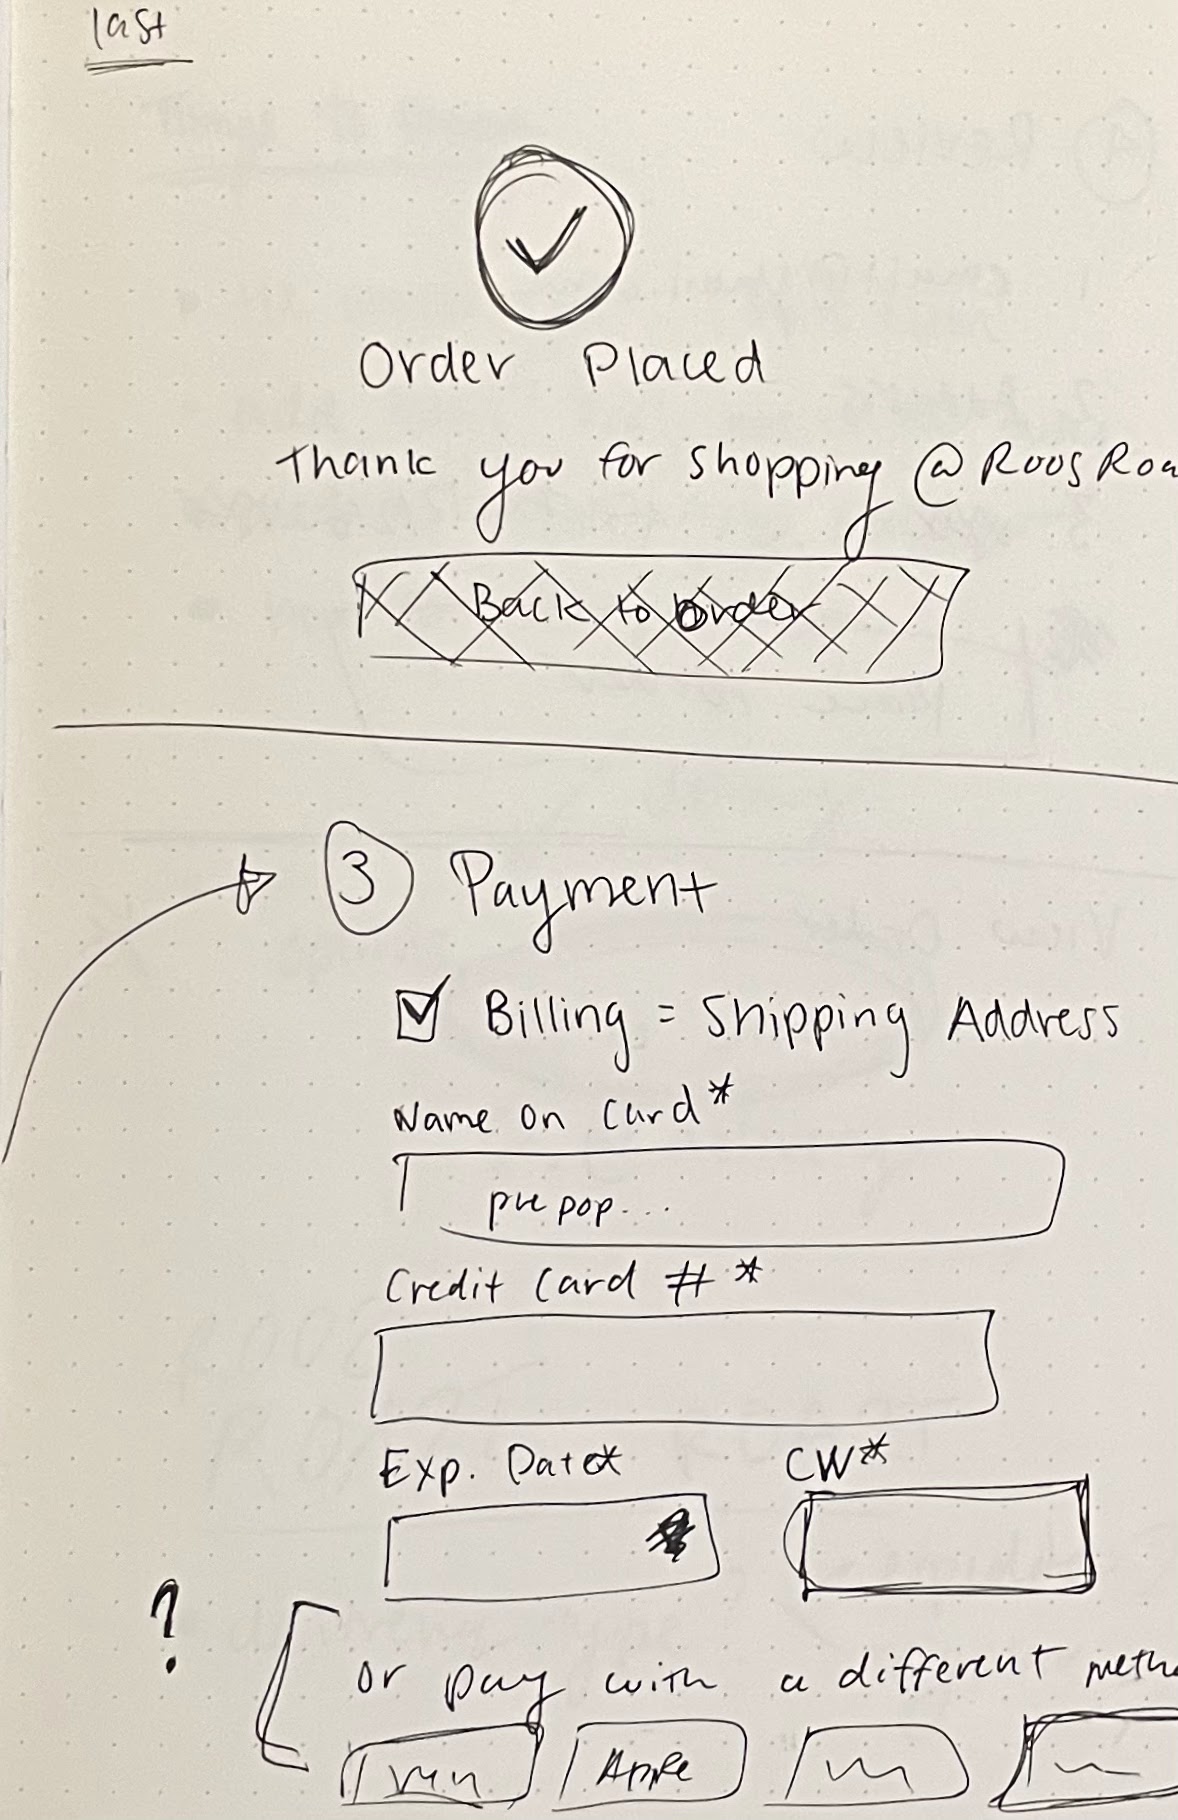 last
Order Placed
Thank you for shopping @ Roos Roa
Back to order
3 Payment
Billing = Shipping Address
Name on Card*
pre pop...
Credit Card # *
Exp. Date*
CVV*
?
or pay with a different meth
ven Apple